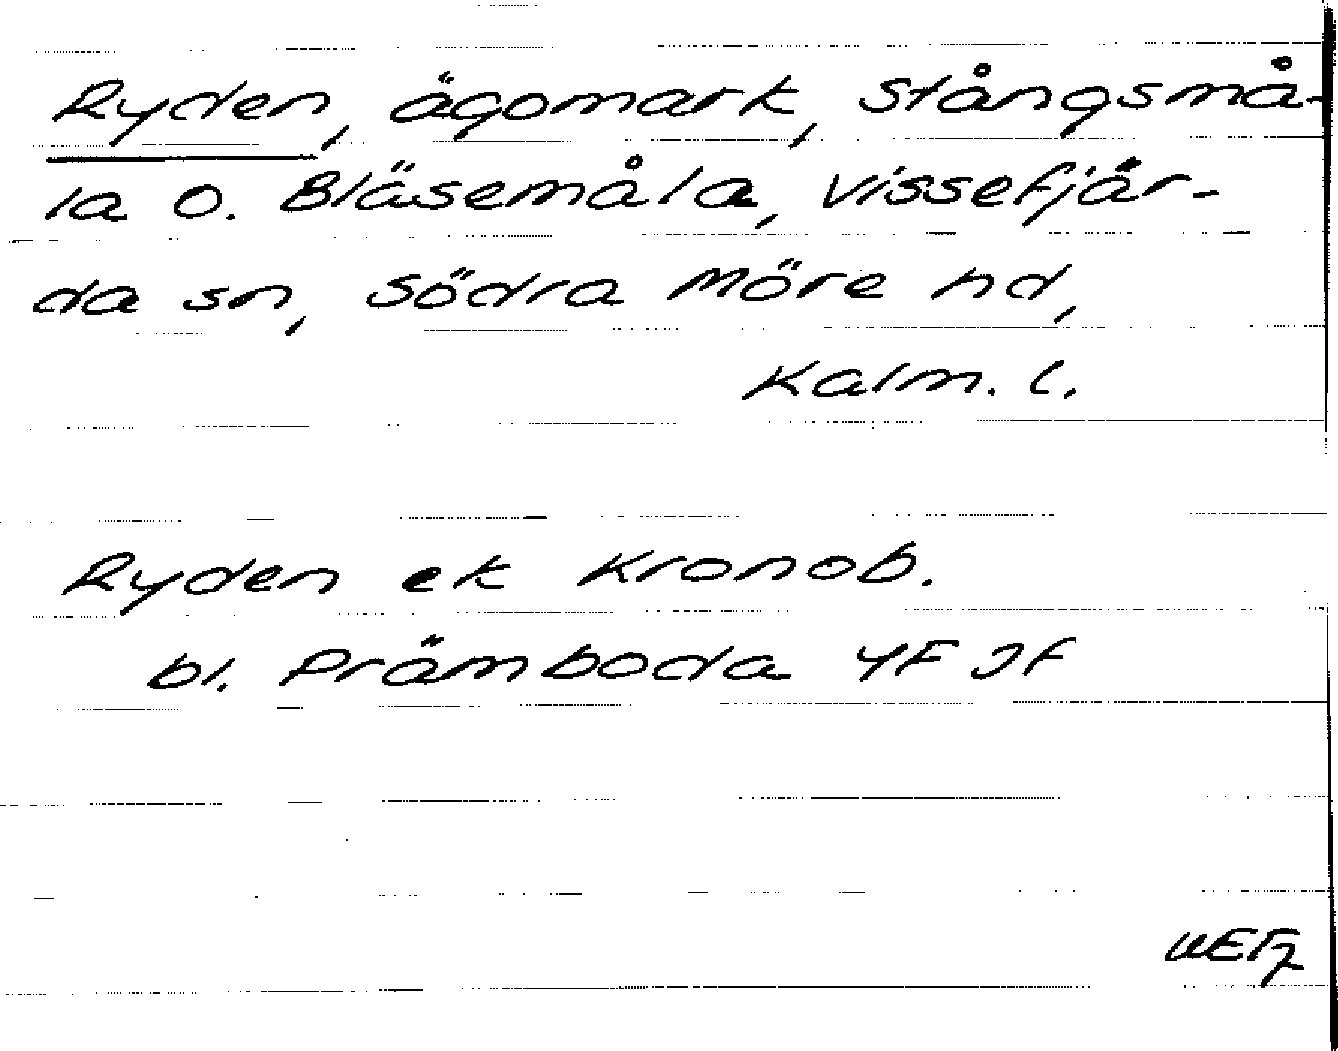 Ryden, ägomark, Stångsmå-
la o. Bläsemåla, Vissefjär-
da sn, Södra Möre hd,
Kalm. l.
Ryden ek Kronob.
bl. Främboda YF JF